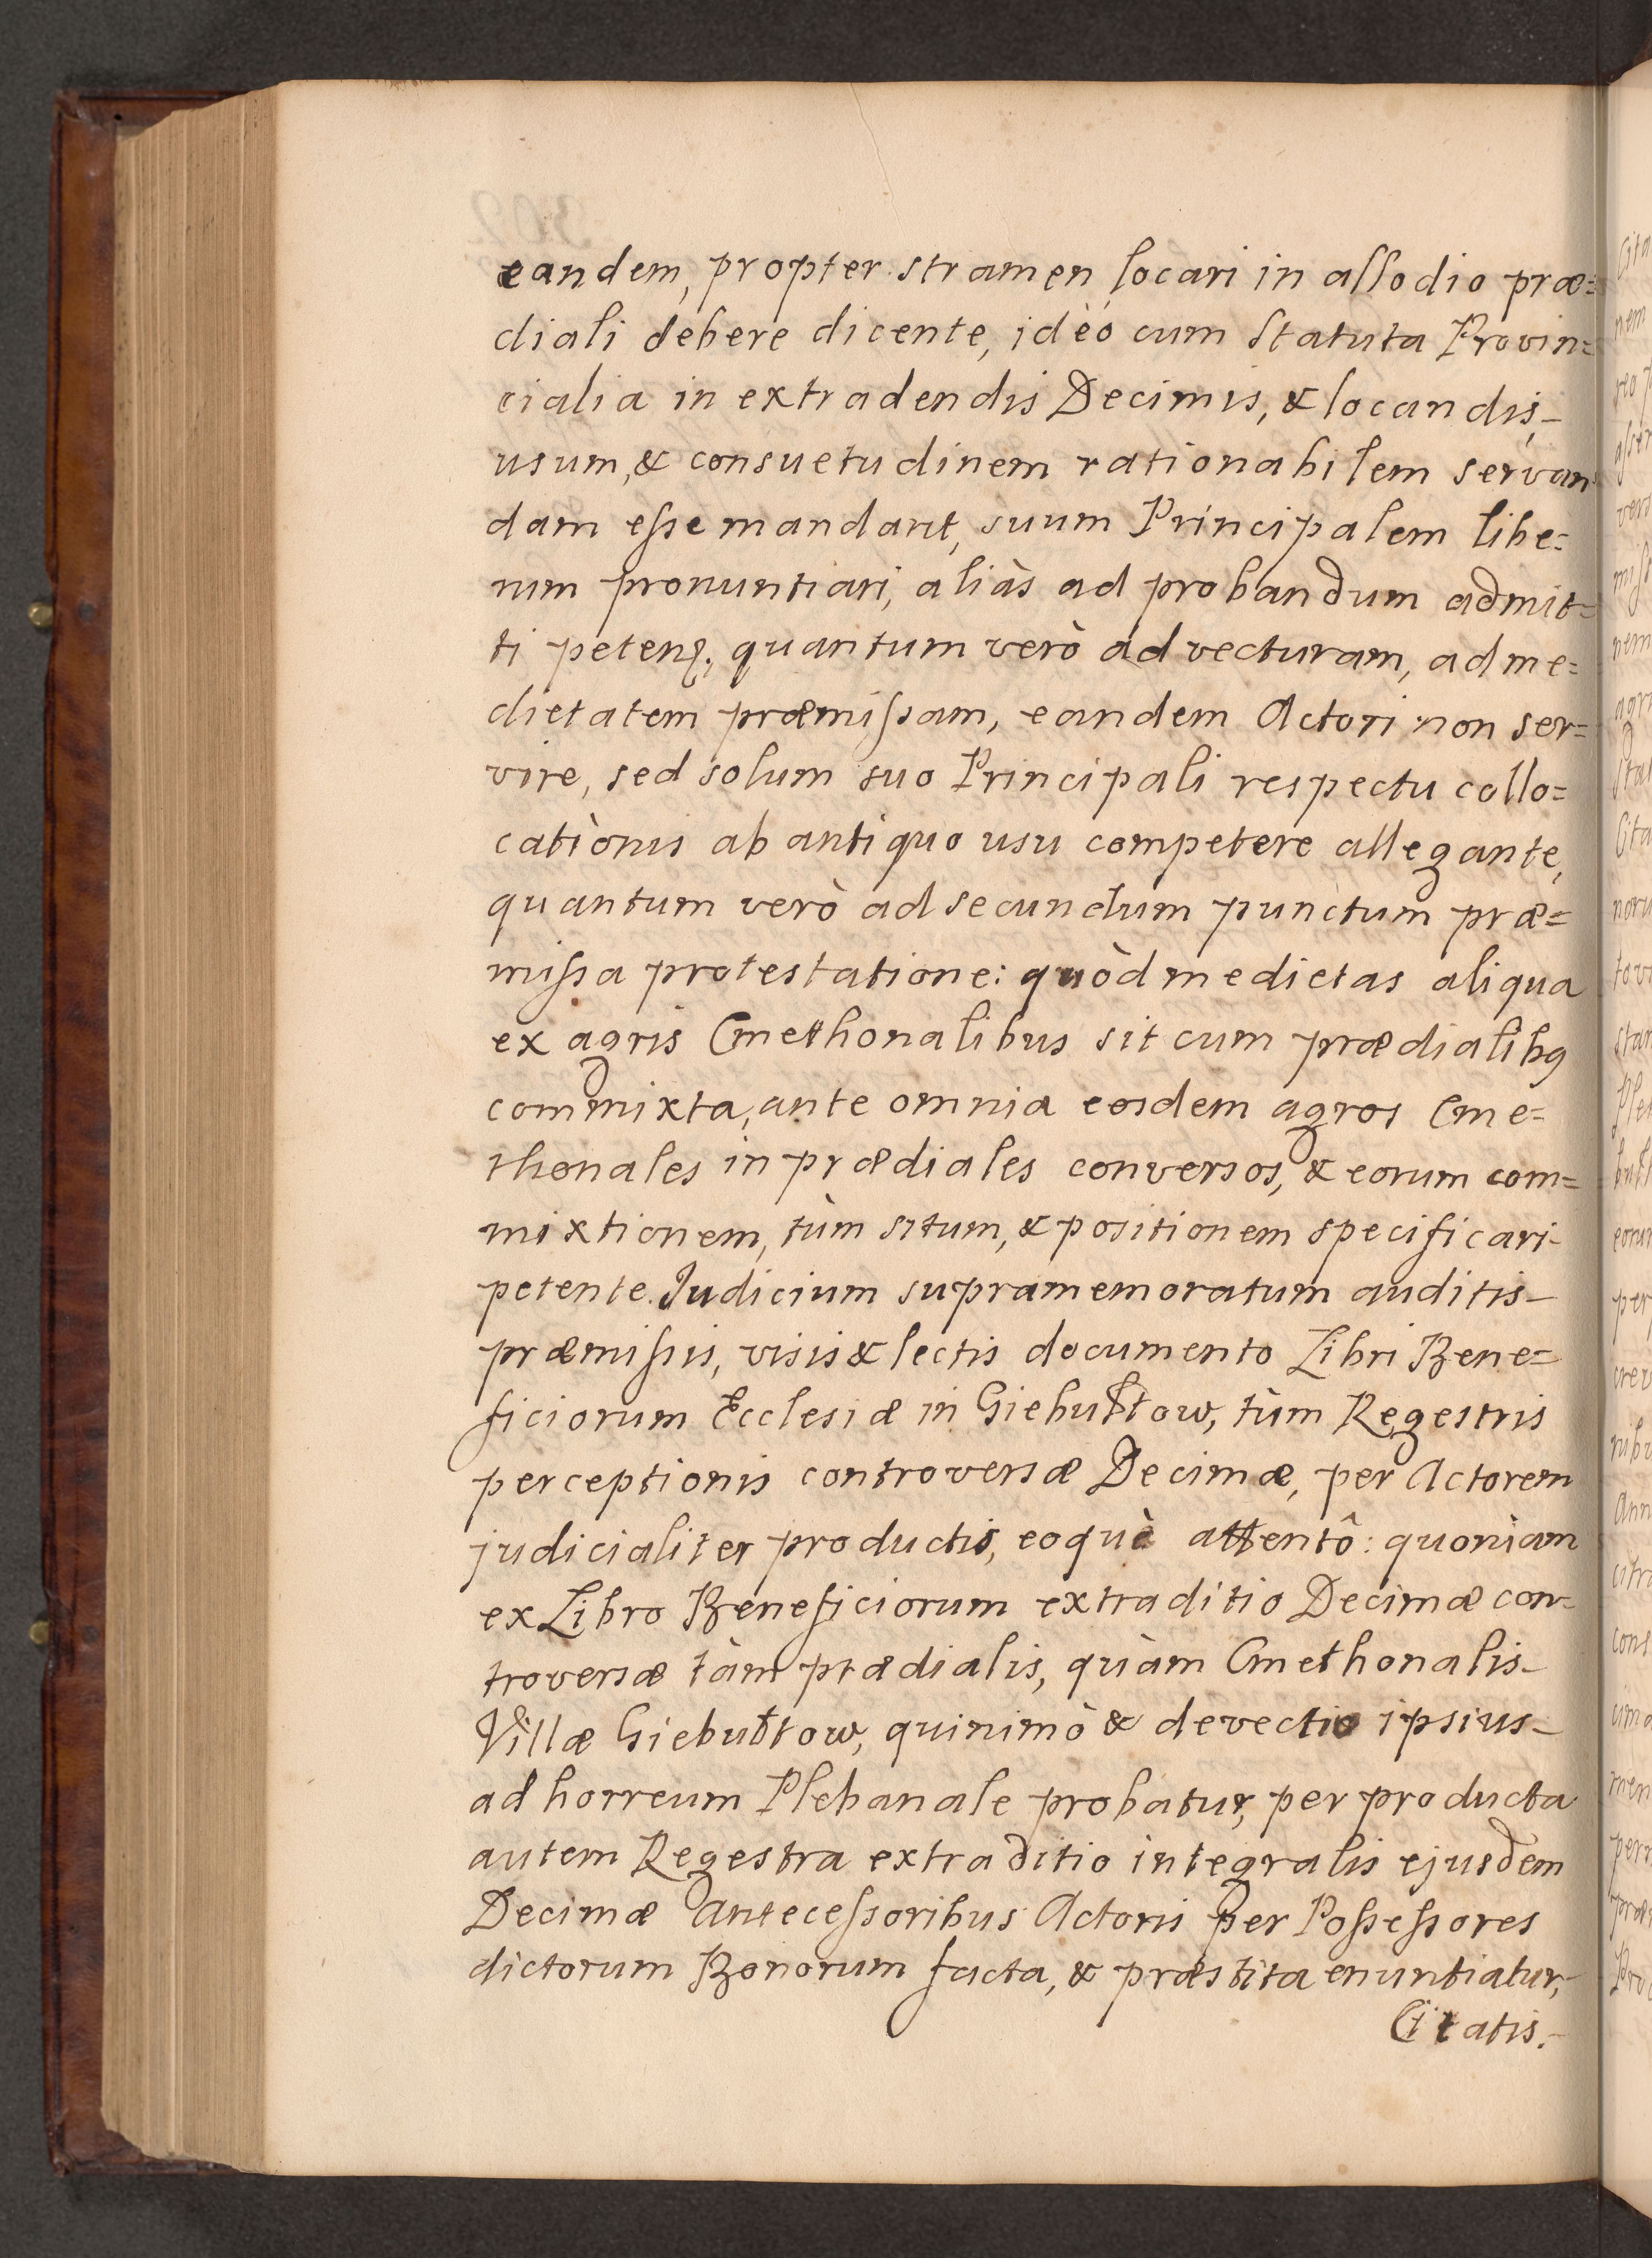 eandem, propter stramen locari in allodio præ=
diali debere dicente, ideò cum Statuta Provin=
cialia in extradendis Decimis, & locandis,-
usum, & consuetudinem rationabilem servan=
dam esse mandarit, suum Principalem libe=
rum pronuntiari, aliàs ad probandum admit=
ti peten; quantum verò ad vecturam, ad me=
dietatem præmissam, eandem Actori non ser=
vire, sed solum suo Principali respectu collo=
cationis ab antiquo usu competere allegante,
quantum verò ad secundum punctum præ=
missa protestatione: quòd medietas aliqua
ex agris Cmethonalibus sit cum prædialibq
commixta, ante omnia eosdem agros Cme=
thonales in prædiales conversos, & eorum com=
mixtionem, tùm situm, & positionem specificari-
petente. Judicium supramemoratum auditis-
præmissis, visis & lectis documento Libri Bene=
ficiorum Ecclesiæ in Giebułtow, tùm Regestris
perceptionis controversæ Decimæ, per Actorem
judicialiter productis, eoquè attentô: quoniam
ex Libro Beneficiorum extraditio Decimæ con=
troversæ tàm prædialis, quàm Cmethonalis-
Villæ Giebułtow, quinimò & devectio ipsius-
ad horreum Plebanale probatur, per producta
autem Regestra extraditio integralis ejusdem
Decimæ Antecessoribus Actoris per Possessores
dictorum Bonorum facta, & præstita enuntiatur,-
Citatis.-